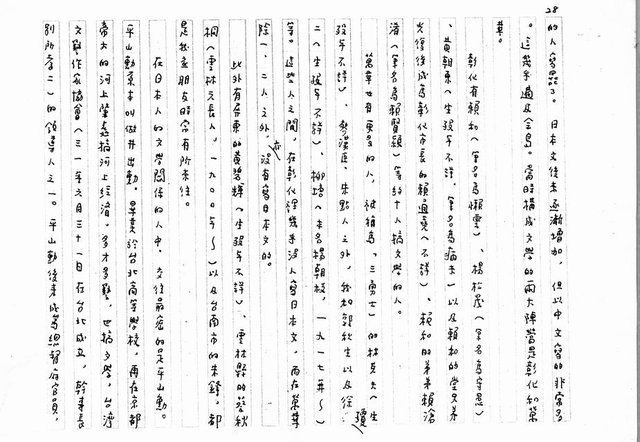 28
的人寫罷了。日本文後來逐漸增加，但以中文寫的非常多
。這幾乎遍及全島。當時構成文學的兩大陣營是彰化和萬
華。
彰化有賴和（筆名為懶雲）、楊松茂（筆名為守愚）
、黃朝東（生歿年不詳，筆名為病夫）以及賴和的堂兄弟
光復後成為彰化市長的賴通堯（不詳）、賴和的弟弟賴滄
洧（筆名為賴賢穎）等約十人搞文學的人。
萬華也有更多的人，被稱為「三勇士」的林克夫（生
歿年不詳）、朱點人之外，我和郭秋生以及徐瓊
二（生歿年不詳）、柳塘（本名楊朝枝，一九一七年～）
等。這些人之間，在彰化裡幾乎沒人寫日本文，而在萬華
除一、二人之外，亦沒有寫日本文的。
此外有屏東的黃碧輝（生歿年不詳）、雲林縣的蔡秋
桐（雲林元長人，一九〇〇年～）以及台南市的朱鋒，都
是我主朋友時常有所來往。
在日本人的文學關係的人中，交往最密的是平山勳。
平山勳原本叫做井出勳，畢業於台北高等學校，再在京都
帝大的河上肇處搞河上經濟。多才多藝，也搞文學，台灣
文藝作家協會（三一年六月三十一日在台北成立，幹事長
別所孝二）的領導人之一。平山勳後來成為總督府官員，